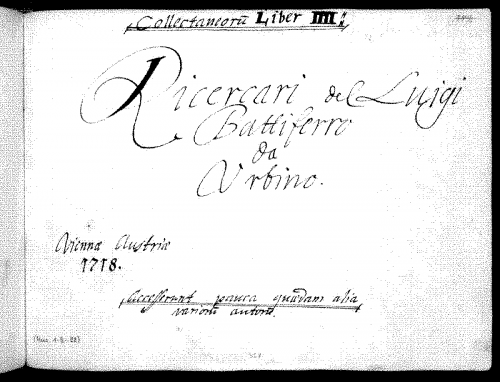 Collectaneorū Liber IIII:
Ricercari del Luigi
Battiferro
da
Vrbino.
Viennæ Austriæ
1718.
Accesserunt pauca quædam alia
variorū autorū.